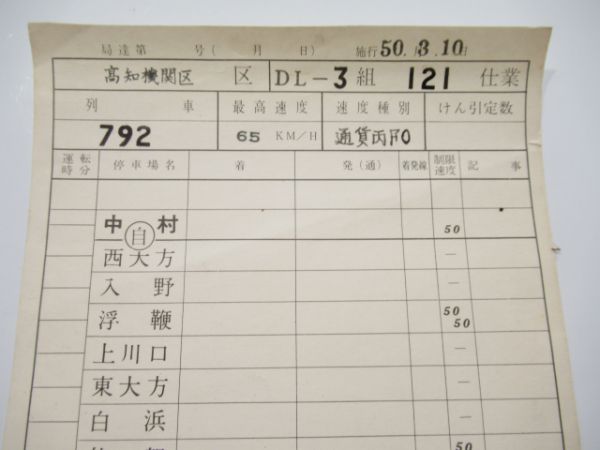 局達第 号( 月 日) 施行50.3.10日
高知機関区 区 DL-3組 121 仕業
列 車 最高速度 速度種別 けん引定数
792 65 KM/H 通貨丙F0
運転時分 停車場名 着 発(通) 着発線 制限速度 記 事
中 村 50
自
西大方 —
入 野 —
浮 鞭 50
50
上川口 —
東大方 —
白 浜 —
50